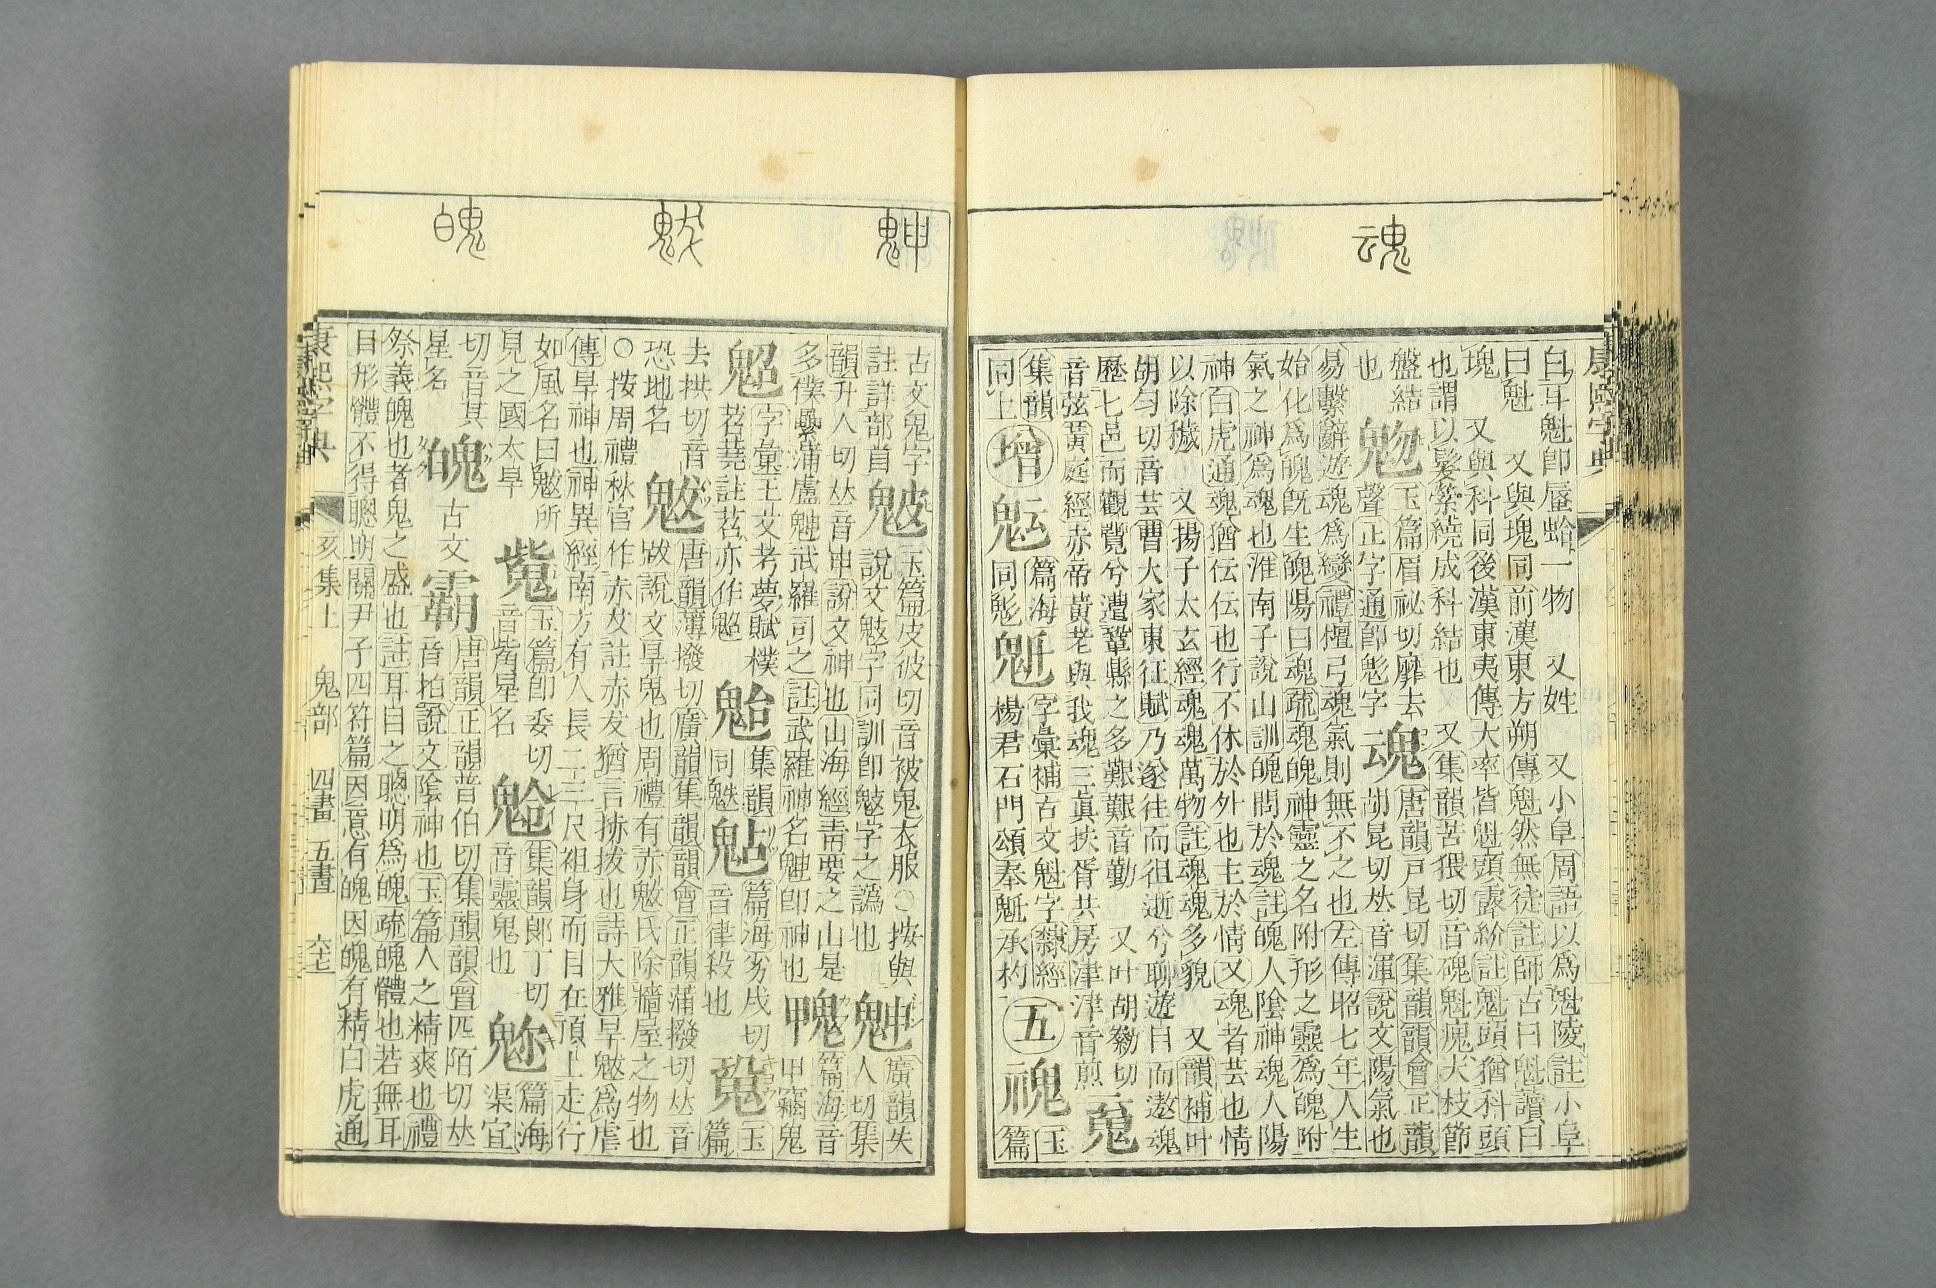 魂
白耳魁卽蜃蛤一物 又姓 又小阜周語以爲魁陵註小阜
曰魁 又與塊同前漢東方朔傳魁然無徒註師古曰魁讀曰
塊 又與科同後漢東夷傳大率皆魁頭露紒註魁頭猶科頭
也謂以髮縈繞成科結也 又集韻苦猥切音磈魁瘣木枝節
盤結也 䰧玉篇眉祕切靡去聲正字通卽鬽字 魂唐韻戸昆切集韻韻會正韻
胡昆切𠀤音渾說文陽氣也
易繫辭遊魂爲變禮檀弓魂氣則無不之也左傳昭七年人生
始化爲魄旣生魄陽曰魂疏魂魄神靈之名附形之靈爲魄附
氣之神爲魂也淮南子說山訓魄問於魂註魄人陰神魂人陽
神白虎通魂猶伝伝也行不休於外也主於情又魂者芸也情
以除穢 又揚子太玄經魂魂萬物註魂魂多貌 又韻補叶
胡勻切音芸曹大家東征賦乃遂往而徂逝兮聊遊目而遨魂
歷七邑而觀覽兮遭鞏縣之多艱艱音勤 又叶胡勬切
音弦黃庭經赤帝黃老與我魂三眞扶胥共房津津音煎 䰟
集韻同上 增 䰟篇海同鬽 字彙補古文魁字隸經
楊君石門頌奉魁承杓 五 䰠玉篇
古文鬼字註詳部首 䰙玉篇皮彼切音被鬼衣服○按與
說文鬾字同訓卽鬾字之譌也 䰠廣韻失人切集
韻升人切𠀤音申說文神也山海經靑要之山是
多僕纍蒲盧䰠武羅司之註武羅神名䰠卽神也 篇海音甲竊鬼
字彙王艾考夢賦樸 集韻同魅 篇海劣戌切音律殺也 玉篇
去拱切音恐地名 魃唐韻薄撥切廣韻集韻韻會正韻蒲撥切𠀤音
跋說文旱鬼也周禮有赤魃氏除牆屋之物也
○按周禮秋官作赤犮註赤犮猶言捇拔也詩大雅旱魃爲虐
傳旱神也神異經南方有人長二三尺袒身而目在頂上走行
如風名曰魃所見之國大旱 玉篇卽委切音觜星名 集韻郞丁切音靈鬼也 篇海渠宜
切音其星名 魄古文霸唐韻正韻普伯切集韻韻會匹陌切𠀤
音拍說文陰神也玉篇人之精爽也禮
祭義魄也者鬼之盛也註耳目之聰明爲魄疏魄體也若無耳
目形體不得聰明關尹子四符篇因意有魄因魄有精白虎通
康熙字典 亥集上 鬼部 四畫 五畫
䰠 魃 魄
康熙字典